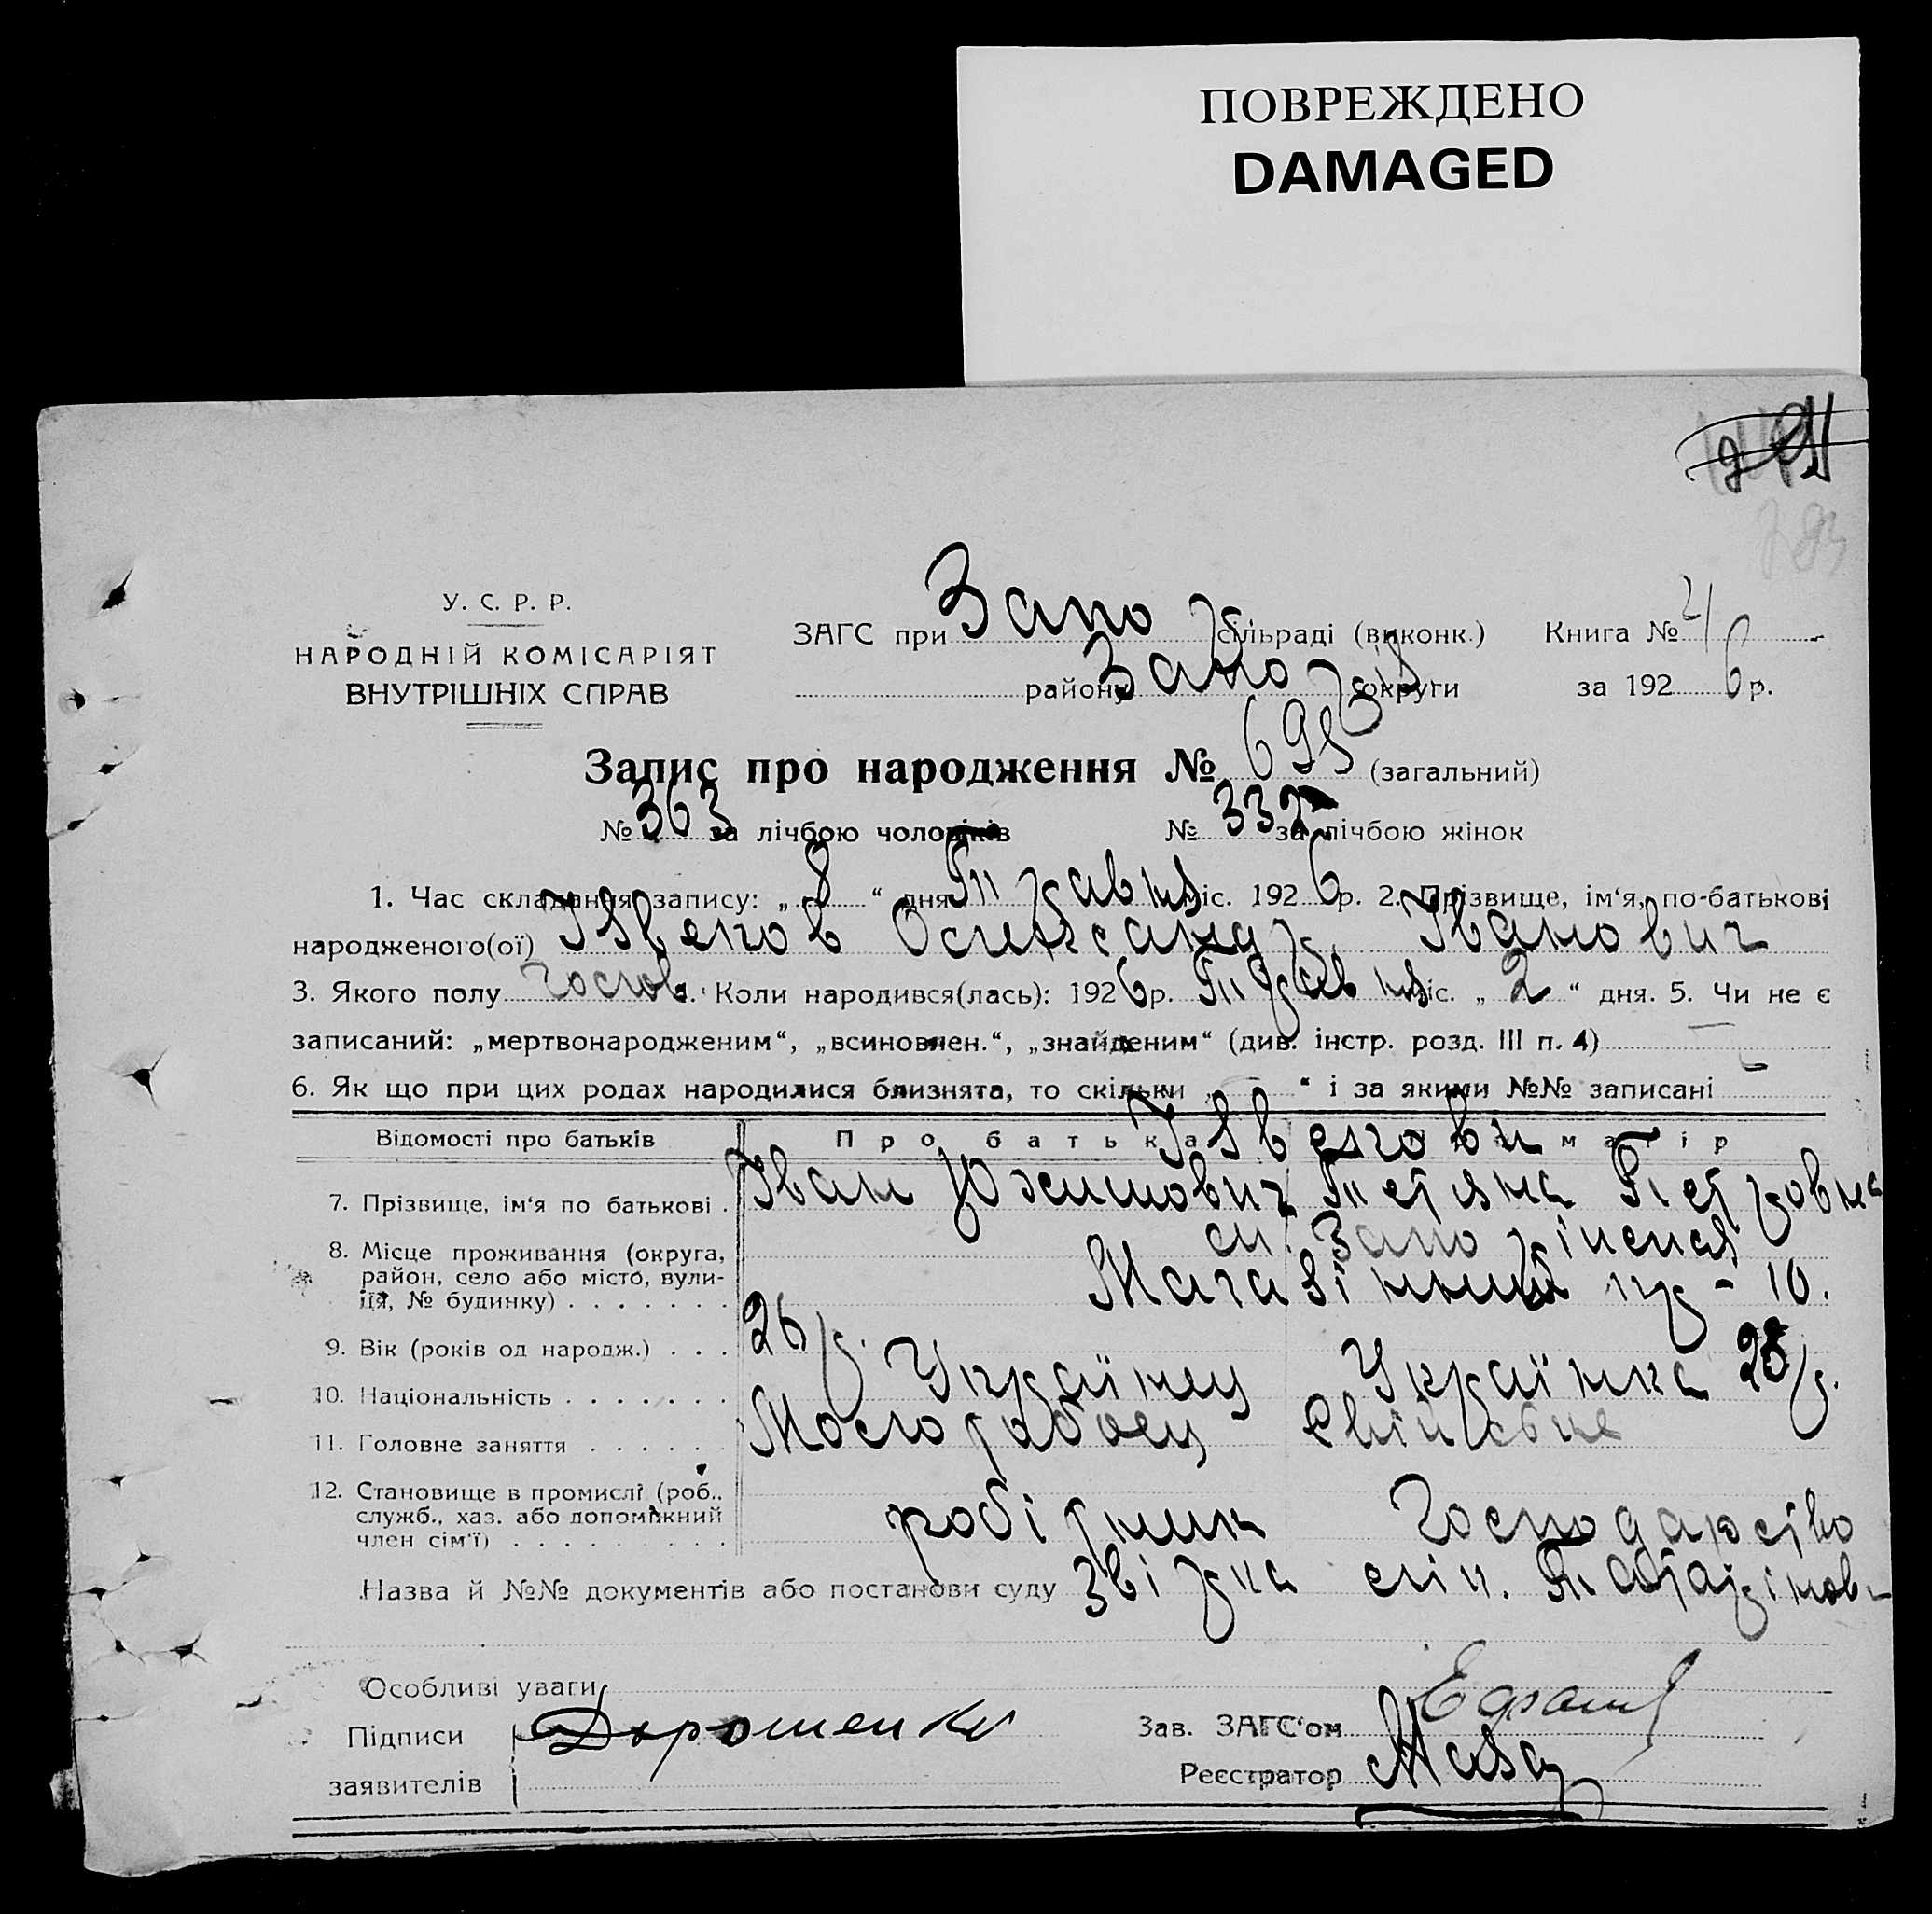 ПОВРЕЖДЕНО
DAMAGED
У. С. Р. Р.
НАРОДНІЙ КОМІСАРІЯТ
ВНУТРІШНІХ СПРАВ
ЗАГС при Запор сільраді (виконк.) Книга № 4
району Запоріз округи за 1926 р.
Запис про народження № 695 (загальний)
№ 363 за лічбою чоловіків № 332 за лічбою жінок
1. Час складання запису: „ 8 “ дня Травня міс. 1926 р. 2. Прізвище, ім‘я, по-батькові
народженого(ої) Олександр Іванович
3. Якого полу чолов. Коли народився(лась): 1926 р. Травня міс. „ 2 “ дня. 5. Чи не є
записаний: „мертвонародженим“, „всиновлен.“, „знайденим“ (див. інстр. розд. III п. 4)
6. Як що при цих родах народилися близнята, то скільки „ “ і за якими №№ записані
Відомості про батьків Про батька матір
7. Прізвище, ім‘я по батькові . Іван Тетяна Петровна
8. Місце проживання (округа, ст. Запоріжжя
район, село або місто, вули-
ця, № будинку) . . . . . . . Магазінний пр - 10.
9. Вік (років од народж.) . . . 26 р. 28 р.
10. Національність . . . . . . . Українец Українка
11. Головне заняття . . . . . . Маслорабоец Сільске
12. Становище в промислі (роб.,
служб., хаз. або допоміжний робітник Господарство
член сім‘ї) . . . . . . . . .
Назва й №№ документів або постанови суду Звірка
Особливі уваги
Підписи Дорошенко Зав. ЗАГС‘ом
заявителів Реєстратор